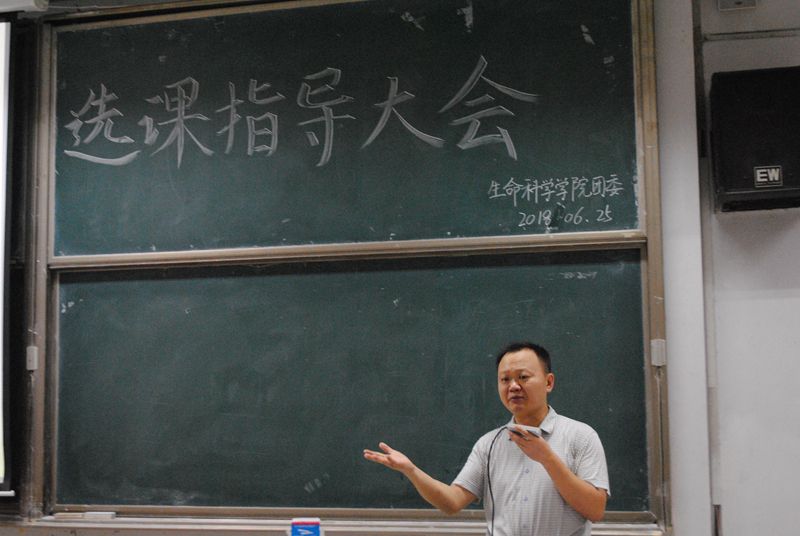 选课指导大会
生命科学学院团委
2018.06.25
EW